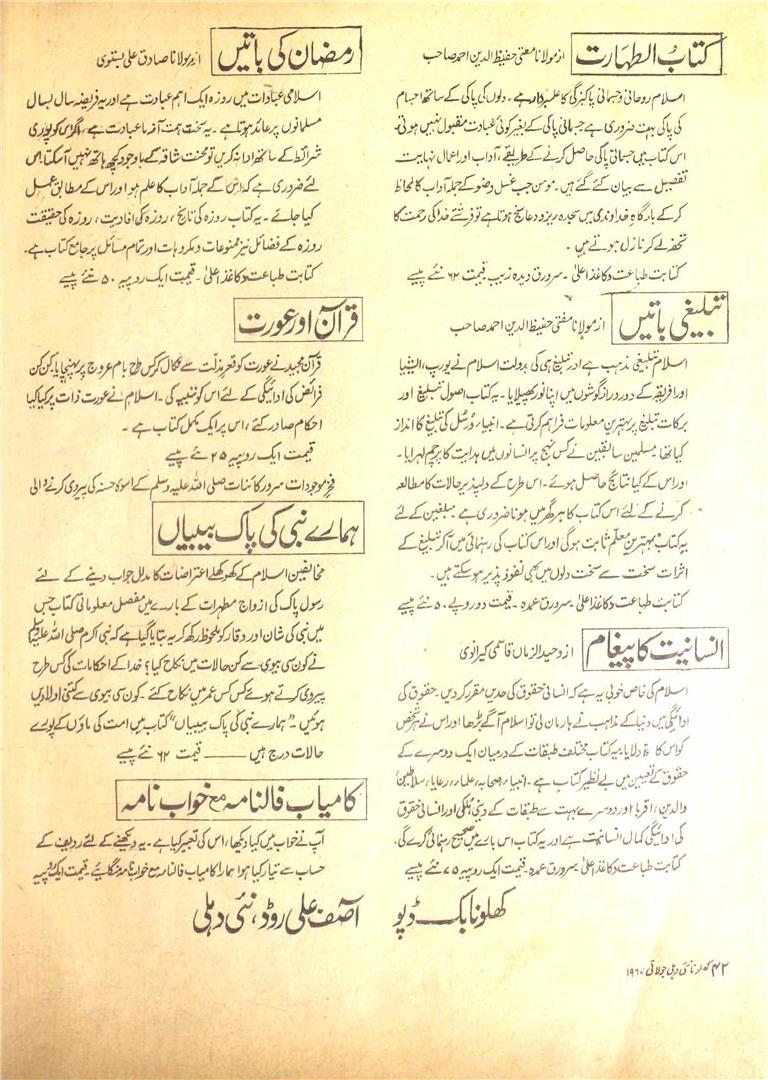 کتابُ الطہارت از مولانا مفتی حفیظ الدین احمد صاحب
اسلام روحانی و جسمانی پاکیزگی کا علمبردار ہے۔ دلوں کی پاکی کے ساتھ اجسام
کی پاکی بہت ضروری ہے جسمانی پاکی کے بغیر کوئی عبادت مقبول نہیں ہوتی۔
اس کتاب میں جسمانی پاکی حاصل کرنے کے طریقے، آداب اور اعمال نہایت
تفصیل سے بیان کئے گئے ہیں۔ مومن جب غسل و وضو کے جملہ آداب کا لحاظ
کر کے بارگاہِ خداوندی میں سجدہ ریز و دعا سنج ہوتا ہے تو فرشتے خدا کی رحمت کا
تحفہ لے کر نازل ہوتے ہیں۔
کتابت طباعت و کاغذ اعلیٰ۔ سرورق دیدہ زیب۔ قیمت ۶۲ نئے پیسے
تبلیغی باتیں از مولانا مفتی حفیظ الدین احمد صاحب
اسلام تبلیغی مذہب ہے اور تبلیغ ہی کی بدولت اسلام نے یورپ، ایشیا
اور افریقہ کے دور دراز گوشوں میں اپنا نور پھیلایا۔ یہ کتاب اصول تبلیغ اور
برکات تبلیغ پر بہترین معلومات فراہم کرتی ہے۔ انبیاء و رُسُل کی تبلیغ کا انداز
کیا تھا، مبلغین سابقین نے کس نہج پر انسانوں میں ہدایت کا پرچم لہرایا۔
اور اس کے کیا نتائج حاصل ہوئے۔ اس طرح کے دلپذیر حالات کا مطالعہ
کرنے کے لئے اس کتاب کا ہر گھر میں ہونا ضروری ہے۔ مبلغین کے لئے
یہ کتاب بہترین معلّم ثابت ہوگی اور اس کتاب کی رہنمائی میں آکر تبلیغ کے
اثرات سخت سے سخت دلوں میں بھی نفوذ پذیر ہو سکتے ہیں۔
کتابت طباعت و کاغذ اعلیٰ۔ سرورق عمدہ۔ قیمت دو روپے ۵۰ نئے پیسے
انسانیت کا پیغام از وحید الزماں قاسمی کیرانوی
اسلام کی خاص خوبی یہ ہے کہ انسانی حقوق کی حدیں مقرر کر دیں۔ حقوق کی
ادائیگی میں دنیا کے مذاہب نے ہار مان لی تو اسلام آگے بڑھا اور اس نے ہر شخص
کو اس کا دلایا، یہ کتاب مختلف طبقات کے درمیان ایک دوسرے کے
حقوق کے تعین میں بے نظیر کتاب ہے۔ انبیاء، صحابہ، علماء، رعایا، سلاطین
والدین، اقربا اور دوسرے بہت سے طبقات کے دینی ملکی اور انسانی حقوق
کی ادائیگی کمال انسانیت ہے اور یہ کتاب اس بارے میں صحیح رہنمائی کرے گی۔
کتابت طباعت و کاغذ اعلیٰ۔ سرورق عمدہ۔ قیمت ایک روپیہ ۷۵ نئے پیسے
کھلونا بک ڈپو
رمضان کی باتیں از مولانا صادق علی بستوی
اسلامی عبادات میں روزہ ایک اہم عبادت ہے اور یہ فریضہ سال بسال
مسلمانوں پر عائد ہوتا ہے۔ یہ سخت ہمت آزما عبادت ہے، مگر اس کو پوری
شرائط کے ساتھ ادا نہ کریں تو محنت شاقہ کے باوجود کچھ ہاتھ نہیں آسکتا اس
لئے ضروری ہے کہ اس کے جملہ آداب کا علم ہو اور اس کے مطابق عمل
کیا جائے۔ یہ کتاب روزہ کی تاریخ، روزہ کی افادیت، روزہ کی حقیقت
روزہ کے فضائل نیز ممنوعات و مکروہات اور تمام مسائل پر جامع کتاب ہے۔
کتابت طباعت و کاغذ اعلیٰ۔ قیمت ایک روپیہ ۵۰ نئے پیسے
قرآن اور عورت
قرآن مجید نے عورت کو قعر مذلّت سے نکال کر کس طرح بام عروج پر پہنچایا کن کن
فرائض کی ادائیگی کے لئے اس کو تنبیہ کی۔ اسلام نے عورت ذات پر کیا کیا
احکام صادر کئے، اس پر ایک مکمل کتاب ہے۔
قیمت ایک روپیہ ۲۵ نئے پیسے
فخر موجودات سرور کائنات صلی اللہ علیہ وسلم کے اسوۂ حسنہ کی پیروی کرنے والی
ہمارے نبی کی پاک بیبیاں
مخالفین اسلام کے کھوکھلے اعتراضات کا مدلل جواب دینے کے لئے
رسول پاک کی ازواج مطہرات کے بارے میں مفصل معلوماتی کتاب جس
میں نبی کی شان اور وقار کو ملحوظ رکھ کر یہ بتایا گیا ہے کہ نبی اکرم صلی اللہ علیہ وسلم
نے کون سی بیوی سے کن حالات میں نکاح کیا؟ خدا کے احکامات کی کس طرح
پیروی کرتے ہوئے کس کس عمر میں نکاح کئے۔ کون سی بیوی سے کتنی اولادیں
ہوئیں۔ "ہمارے نبی کی پاک بیبیاں" کتاب میں امت کی ماؤں کے پورے
حالات درج ہیں —— قیمت ۶۲ نئے پیسے
کامیاب فالنامہ مع خواب نامہ
آپ نے خواب میں کیا دیکھا، اس کی تعبیر کیا ہے۔ یہ دیکھنے کے لئے ردیف کے
حساب سے تیار کیا ہوا ہمارا کامیاب فالنامہ مع خواب نامہ منگائیے۔ قیمت ایک روپیہ
آصف علی روڈ، نئی دہلی
۴۲ کھلونا نئی دہلی جولائی ۱۹۶۷